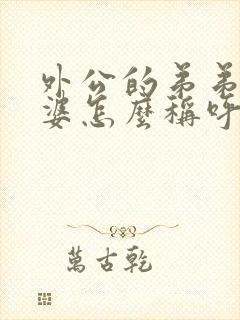 外公的弟弟
婆怎麼稱呼
萬古乾